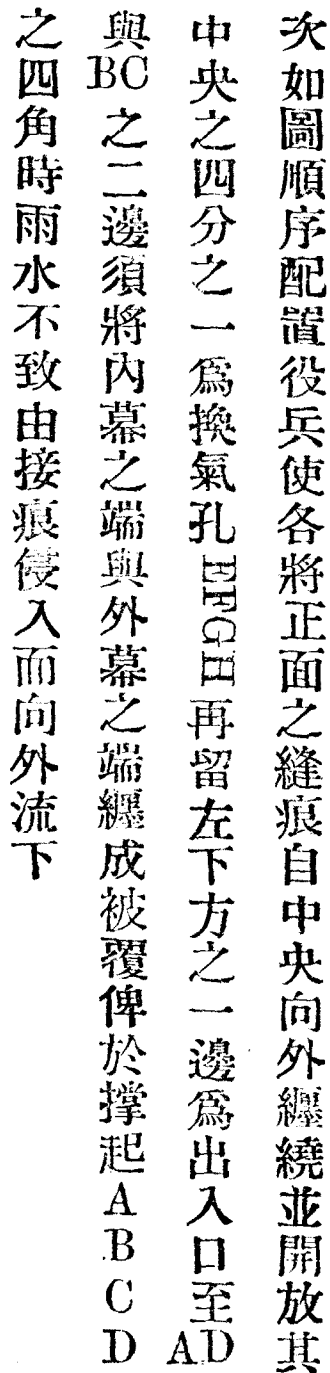 次如圖順序配置役兵使各將正面之縫痕自中央向外纒繞並開放其
中央之四分之一爲換氣孔EFGH再留左下方之一邊爲出入口至AD
與BC之二邊須將內幕之端與外幕之端纒成被覆俾於撑起ABCD
之四角時雨水不致由接痕侵入而向外流下